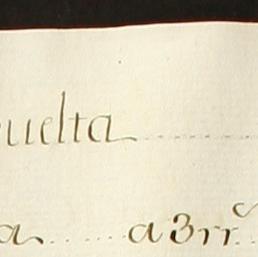 uelta
a a 3 rr